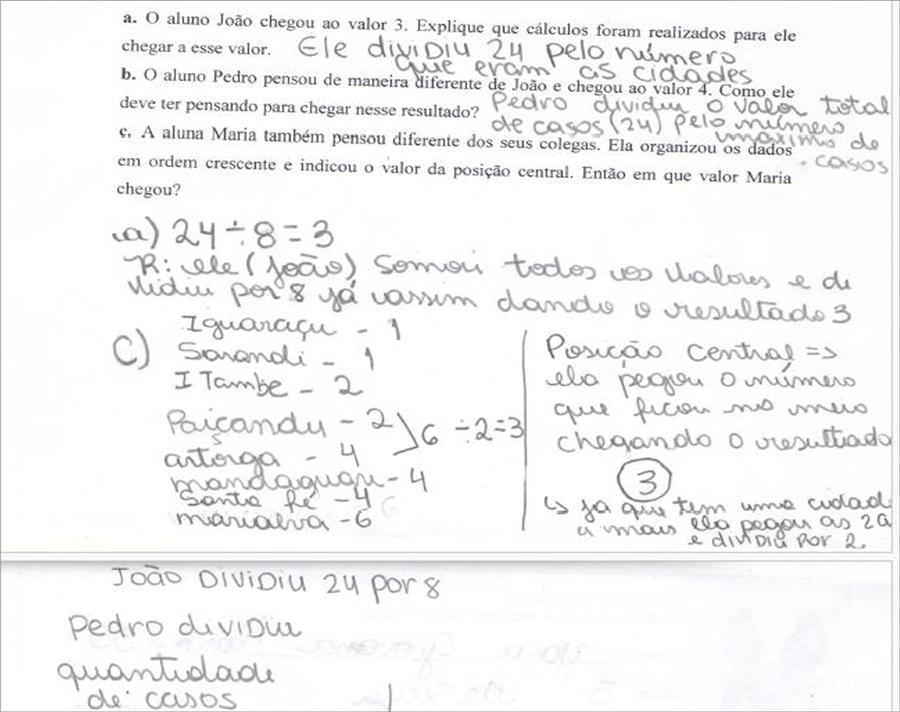 a. O aluno João chegou ao valor 3. Explique que cálculos foram realizados para ele
chegar a esse valor. Ele dividiu 24 pelo número
que eram as cidades
b. O aluno Pedro pensou de maneira diferente de João e chegou ao valor 4. Como ele
deve ter pensando para chegar nesse resultado? Pedro dividiu o valor total
de casos (24) pelo número
máximo de
casos
c. A aluna Maria também pensou diferente dos seus colegas. Ela organizou os dados
em ordem crescente e indicou o valor da posição central. Então em que valor Maria
chegou?
a) 24 ÷ 8 = 3
R: ele (João) Somou todos os valores e di
vidiu por 8 já assim dando o resultado 3
C) Iguaraçu - 1
Sarandi - 1
ITambe - 2
Paiçandu - 2
artorga - 4
6 ÷2=3
mandaguaçu - 4
Santa fé - 4
marialva - 6
Posição central =>
ela pegou o número
que ficou no meio
chegando o resultado
3
↳ ja que tem uma cidade
a mais ela pegou as 2a
e dividiu por 2.
João DiViDiU 24 por 8
Pedro dividiu
quantidade
de casos